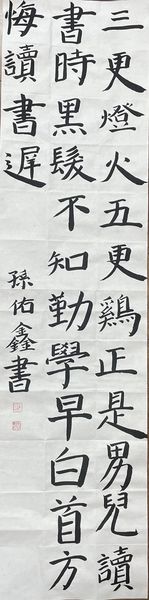 三更燈火五更鷄正是男兒讀
書時黑髮不知勤學早白首方
悔讀書遲
孫佑鑫書